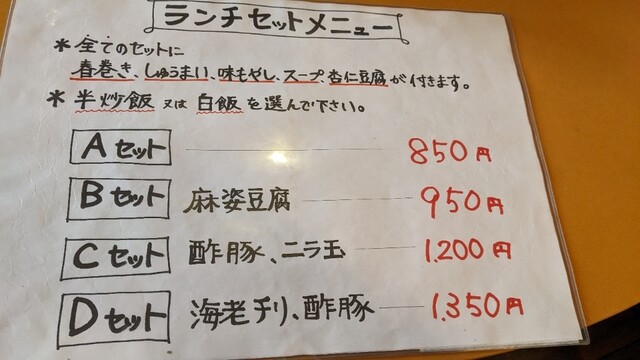 ランチセットメニュー
＊全てのセットに
春巻き、しゅうまい、味もやし、スープ、杏仁豆腐が付きます。
＊半炒飯又は白飯を選んで下さい。
Aセット 850円
Bセット 麻姿豆腐 950円
Cセット 酢豚、ニラ玉 1,200円
Dセット 海老チリ、酢豚 1,350円